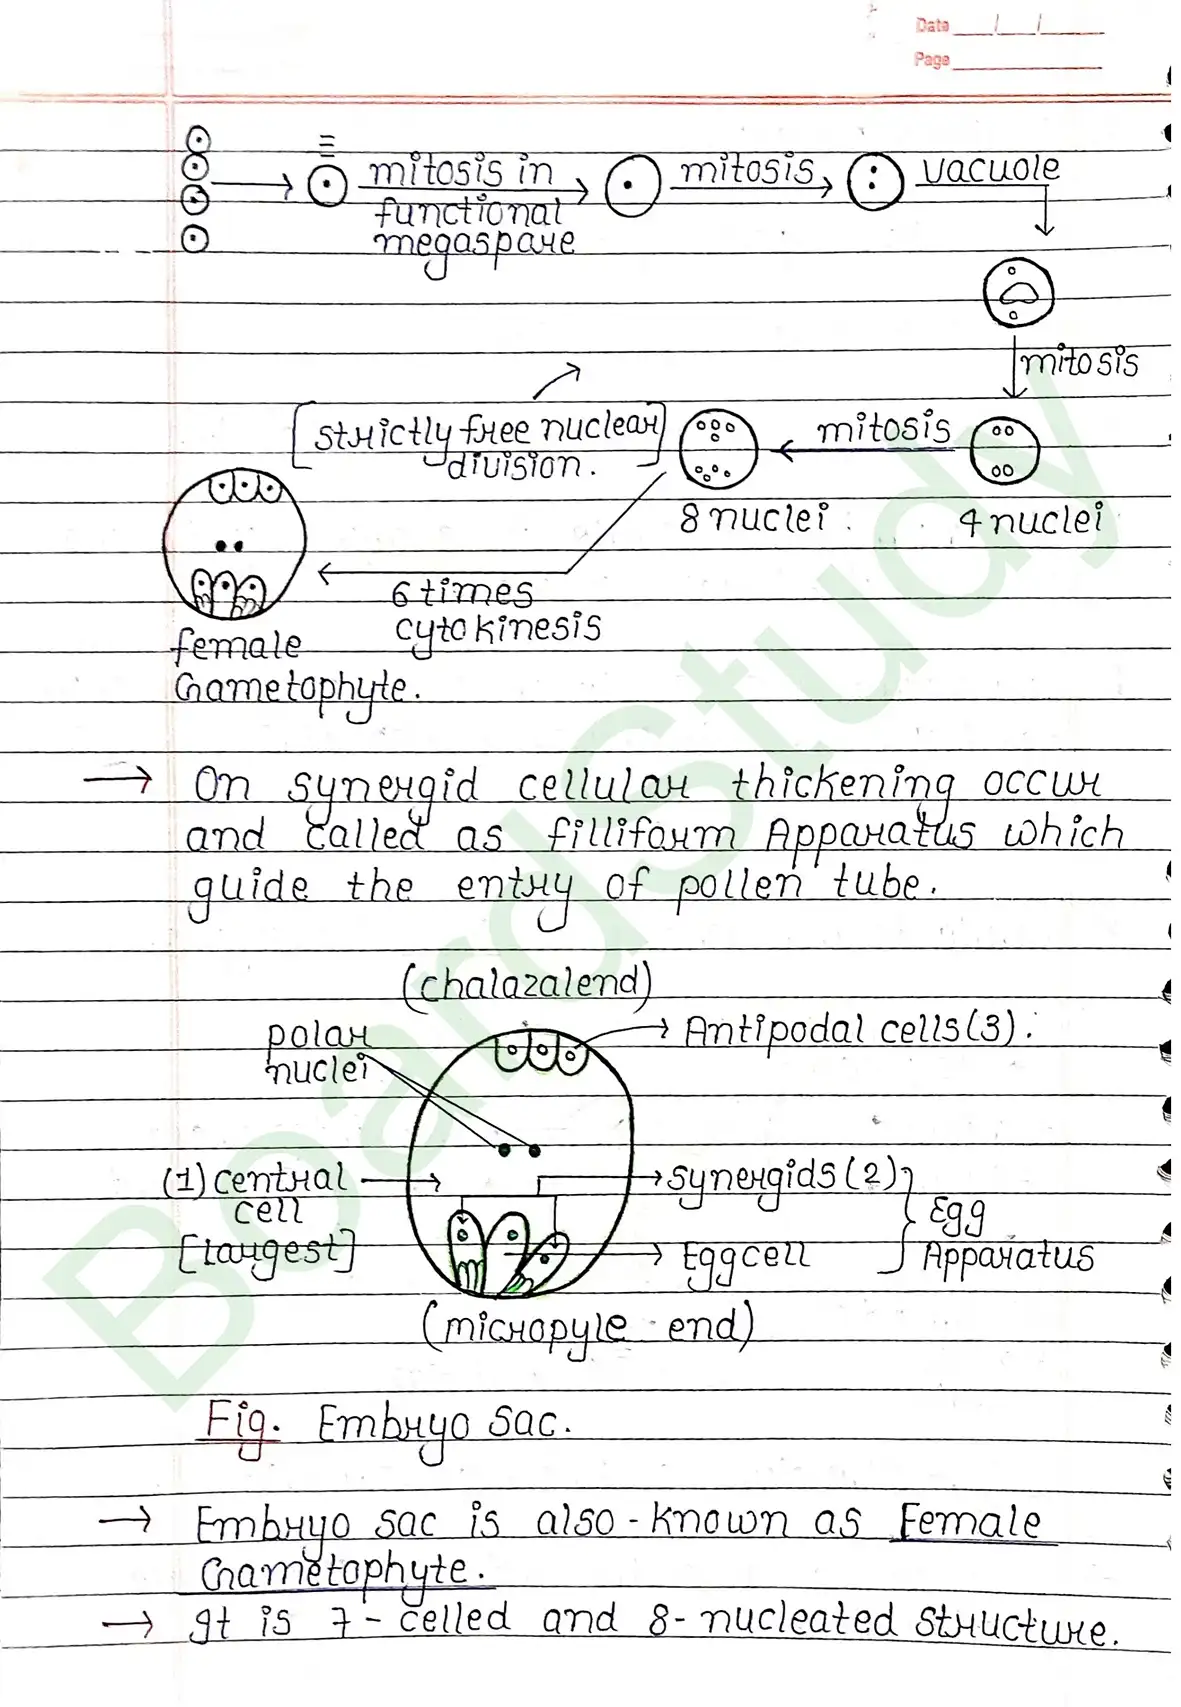 Date / /
Page
mitosis in
functional
megaspore
mitosis
vacuole
mitosis
[strictly free nuclear
division.]
mitosis
8 nuclei
4 nuclei
6 times
cytokinesis
female
Gametophyte.
→ On synergid cellular thickening occur
and called as filliform Apparatus which
guide the entry of pollen tube.
(chalazalend)
polar
nuclei
Antipodal cells(3).
(1) central
cell
[Largest]
synergids(2)
Egg cell
Egg
Apparatus
(micropyle end)
Fig. Embryo sac.
→ Embryo sac is also-known as Female
Gametophyte.
→ It is 7-celled and 8-nucleated structure.
BoardStudy